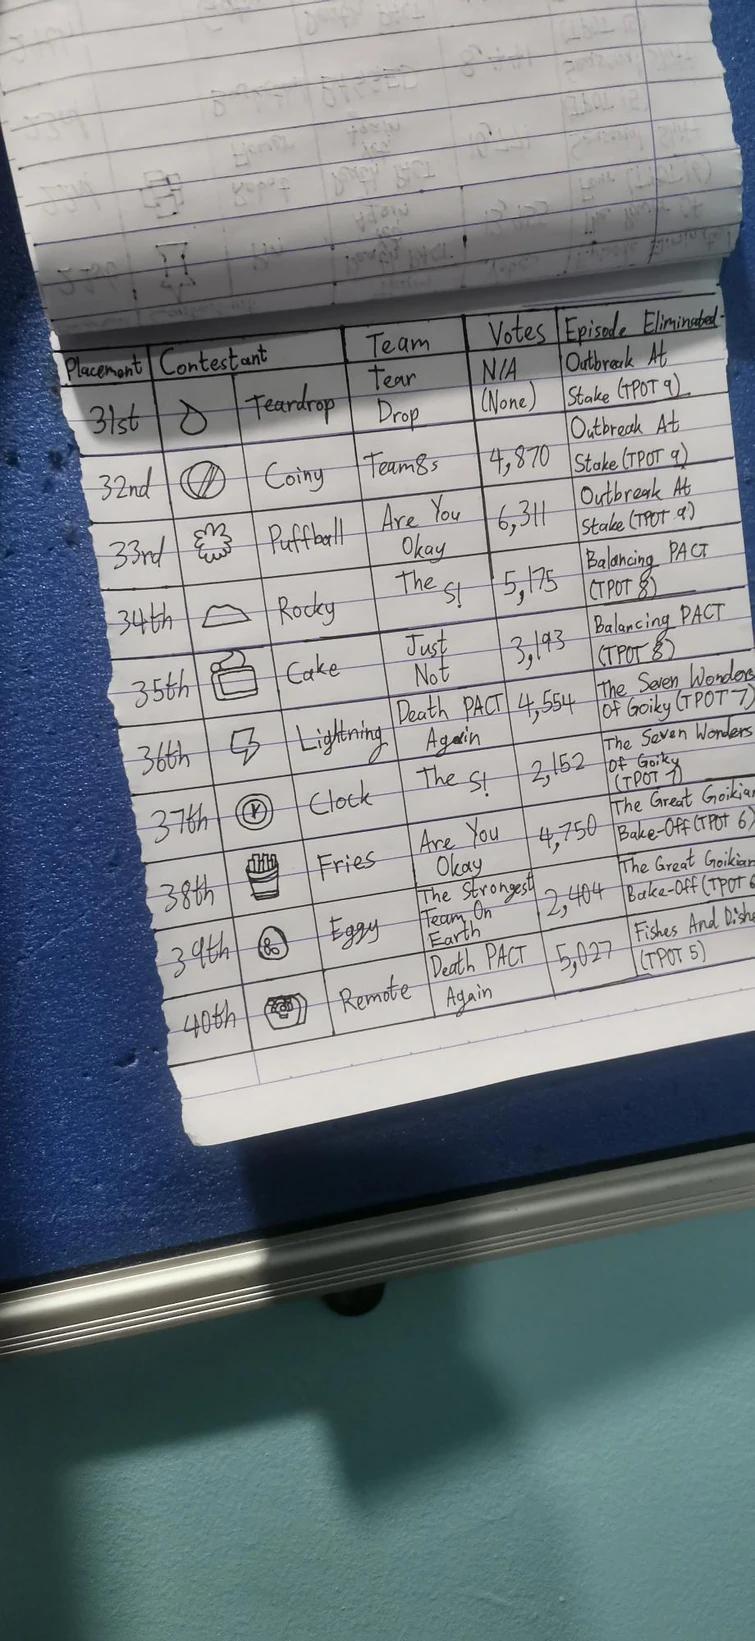 Placement Contestant Team Votes Episode Eliminated
31st Teardrop Tear Drop N/A (None) Outbreak At Stake (TPOT 9)
32nd Coiny Team8s 4,870 Outbreak At Stake (TPOT 9)
33rd Puffball Are You Okay 6,311 Outbreak At Stake (TPOT 9)
34th Rocky The S! 5,175 Balancing PACT (TPOT 8)
35th Cake Just Not 3,193 Balancing PACT (TPOT 8)
36th Lightning Death PACT Again 4,554 The Seven Wonders Of Goiky (TPOT 7)
37th Clock The S! 2,152 The Seven Wonders Of Goiky (TPOT 7)
38th Fries Are You Okay 4,750 The Great Goikian Bake-Off (TPOT 6)
39th Eggy The Strongest Team On Earth 2,404 The Great Goikian Bake-Off (TPOT 6
40th Remote Death PACT Again 5,027 Fishes And Dishe (TPOT 5)